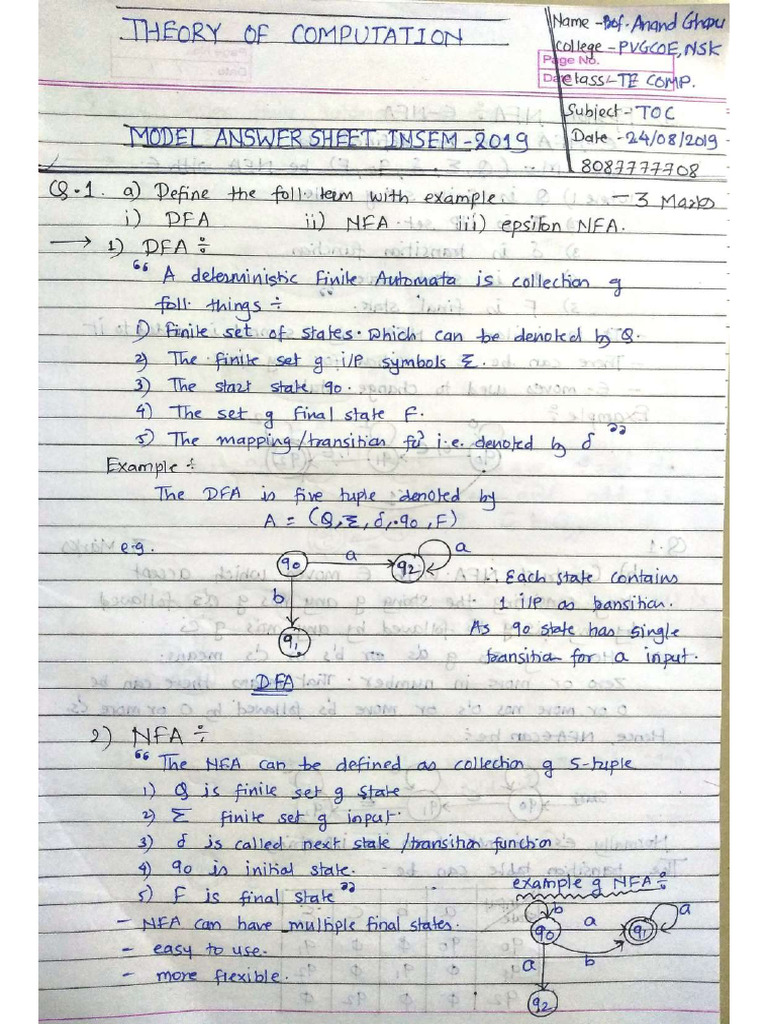 THEORY OF COMPUTATION
Name - Prof. Anand Gharu
College - PVGCOE, NSK
Page No.
Date
class - TE COMP.
Subject - TOC
MODEL ANSWER SHEET INSEM - 2019
Date - 24/08/2019
8087777708
Q.1. a) Define the foll. term with example - 3 Marks
i) DFA ii) NFA iii) epsilon NFA.
→ 1) DFA ÷
“ A deterministic Finite Automata is collection of
foll. things ÷
1) Finite set of states. which can be denoted by Q.
2) The finite set of i/p symbols Σ.
3) The start state q0.
4) The set of final state F.
5) The mapping/transition fn i.e. denoted by δ ”
Example ÷
The DFA is five tuple denoted by
A = (Q, Σ, δ, q0, F)
e.g.
q0 a q2 a
b
q1
Each state contains
1 i/p as transition.
As q0 state has single
transition for a input.
DFA
2) NFA ÷
“ The NFA can be defined as collection of 5-tuple
1) Q is finite set of state
2) Σ finite set of input.
3) δ is called next state /transition function
4) q0 is initial state.
5) F is final state ”
example of NFA ÷
- NFA can have multiple final states.
- easy to use.
- more flexible.
b
q0 a q1 a
b
a
q2